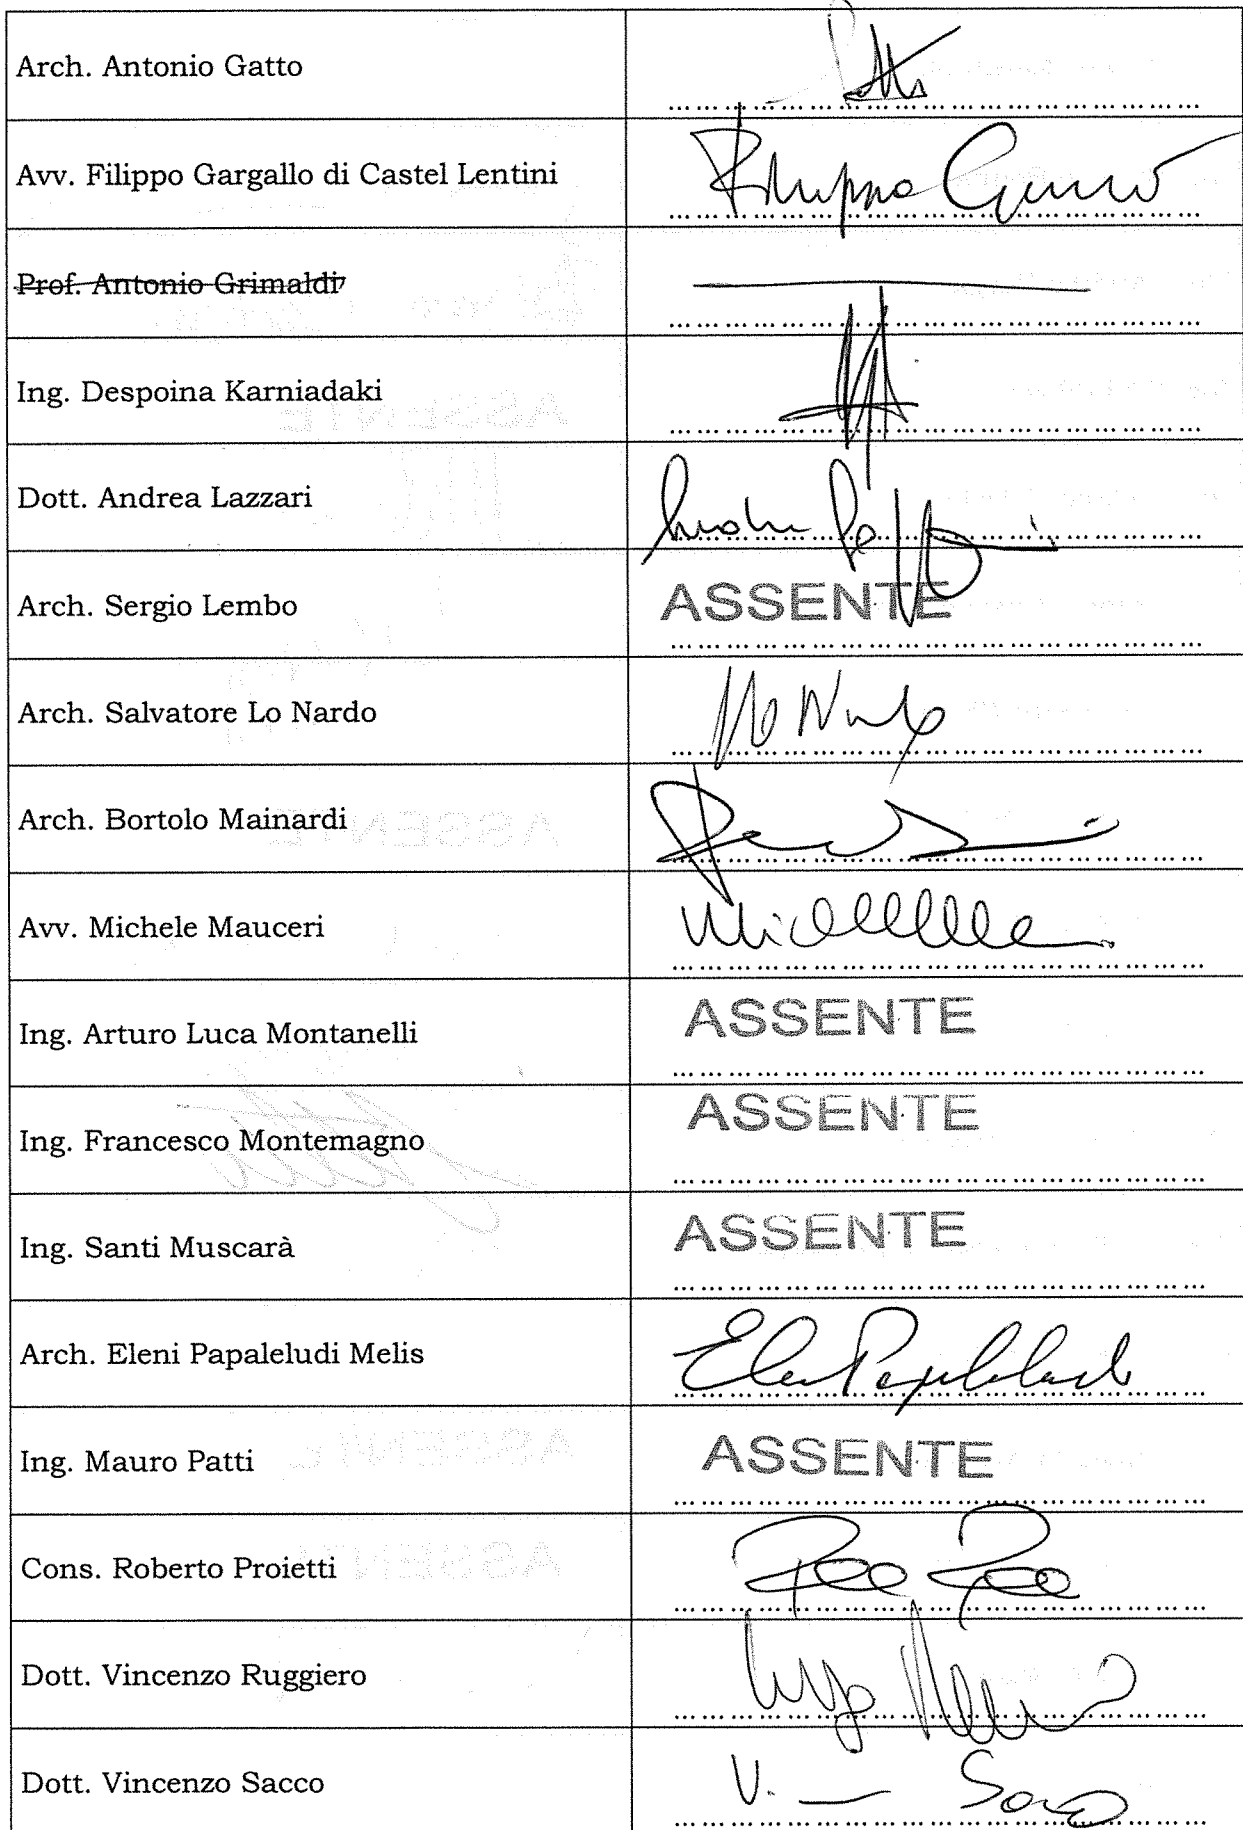 Arch. Antonio Gatto
Avv. Filippo Gargallo di Castel Lentini
Filippo
Prof. Antonio Grimaldi
Ing. Despoina Karniadaki
Dott. Andrea Lazzari
Arch. Sergio Lembo ASSENTE
Arch. Salvatore Lo Nardo
Arch. Bortolo Mainardi
Avv. Michele Mauceri
Ing. Arturo Luca Montanelli ASSENTE
Ing. Francesco Montemagno ASSENTE
Ing. Santi Muscarà ASSENTE
Arch. Eleni Papaleludi Melis
Ing. Mauro Patti ASSENTE
Cons. Roberto Proietti
Dott. Vincenzo Ruggiero
Dott. Vincenzo Sacco V. Sacco